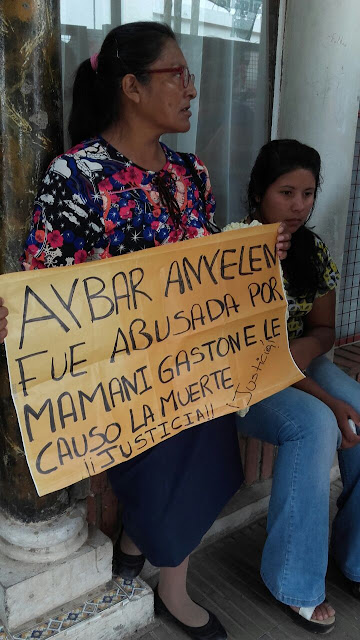 AYBAR ANYELEN
FUE ABUSADA POR
MAMANI GASTON E LE
CAUSO LA MUERTE
¡¡JUSTICIA!!
¡Justicia!
¡Justicia!